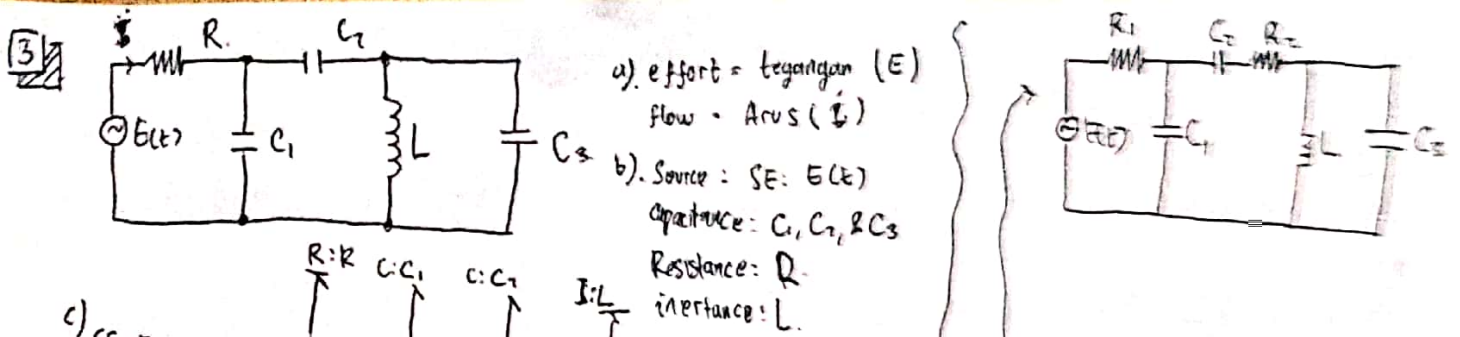 3
i R. C₂
E(t) C₁ L C₃
a). effort = tegangan (E)
flow = Arus (i)
b). Source : SE: E(t)
Capacitance: C₁, C₂, & C₃
Resistance: R.
inertance: L.
R:R C:C₁ C:C₂ I:L
c)
R₁ C₂ R₂
E(t) C₁ L C₃